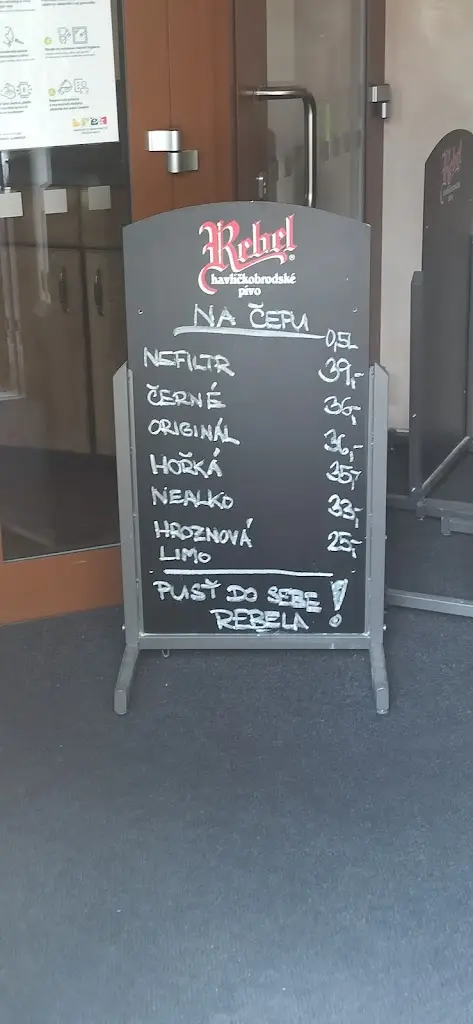 Rebel
havlíčkobrodské
pivo
NA ČEPU
0,5L
NEFILTR 39,-
ČERNÉ 36,-
ORIGINÁL 36,-
HOŘKÁ 35,-
NEALKO 33,-
HROZNOVÁ 25,-
LIMO
PUSŤ DO SEBE
REBELA !